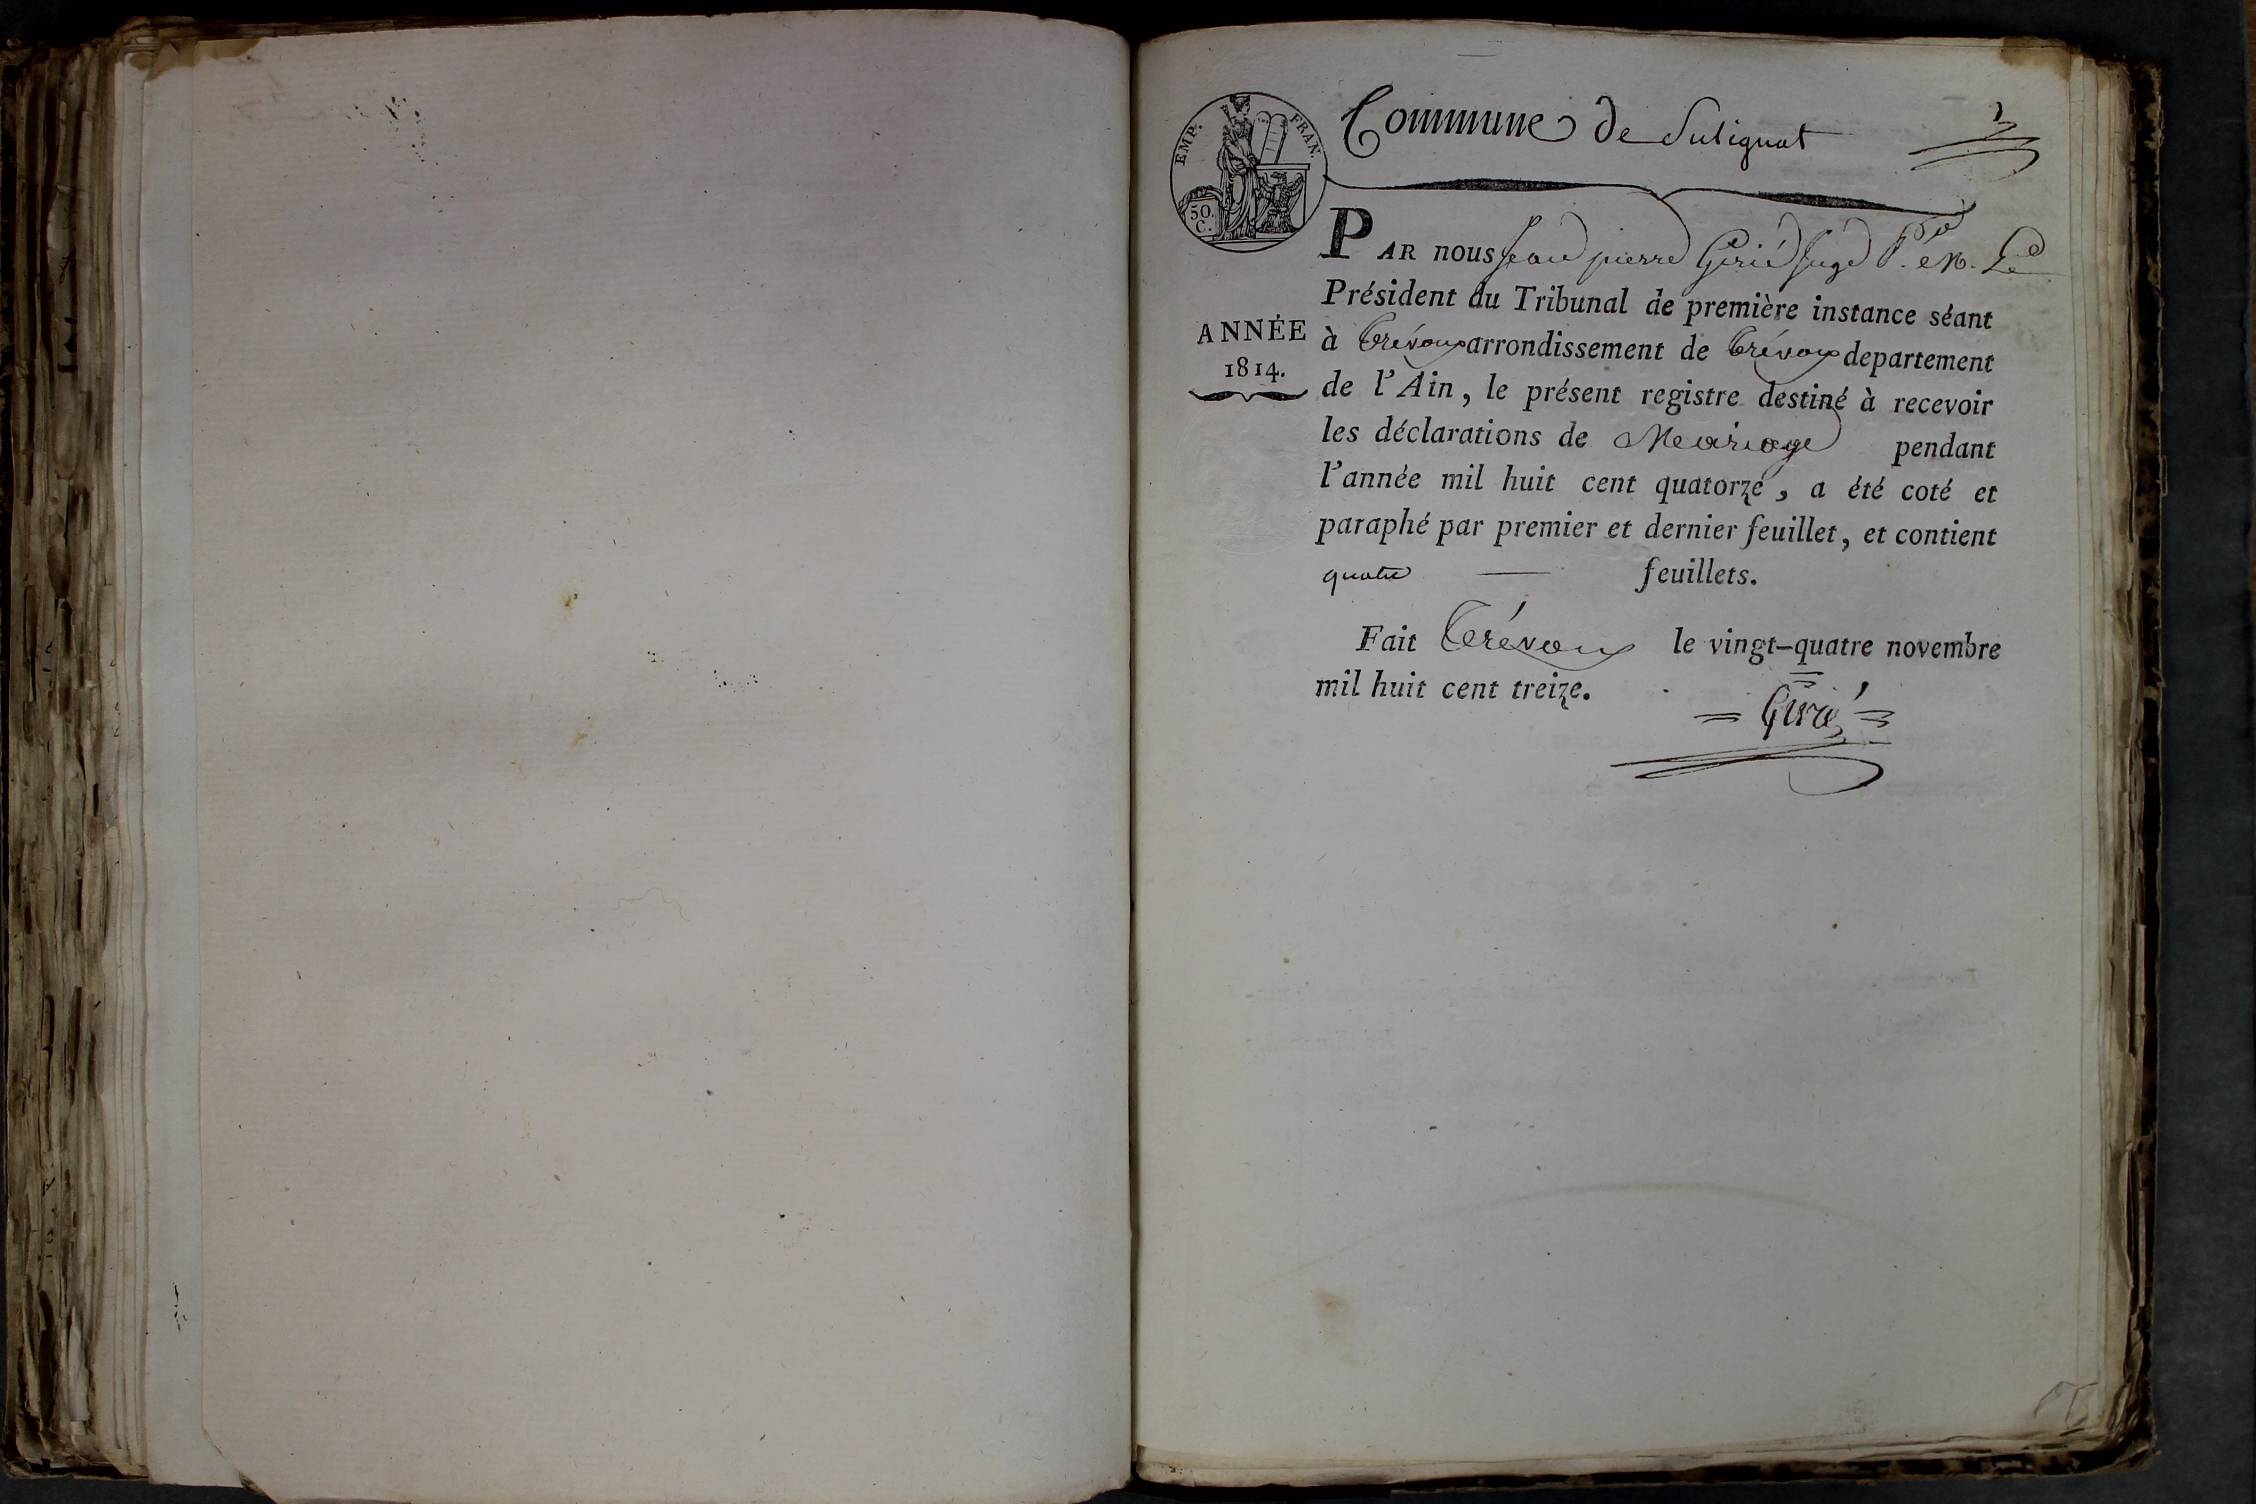 Commune de Sulignat
EMP. FRAN.
50.
C.
PAR nous Jean pierre Girié Juge P. en L.
Président du Tribunal de première instance séant
ANNÉE
1814.
à Trévoux arrondissement de Trévoux departement
de l'Ain, le présent registre destiné à recevoir
les déclarations de Mariage pendant
l'année mil huit cent quatorze, a été coté et
paraphé par premier et dernier feuillet, et contient
quatre — feuillets.
Fait Trévoux le vingt-quatre novembre
mil huit cent treize.
Girié